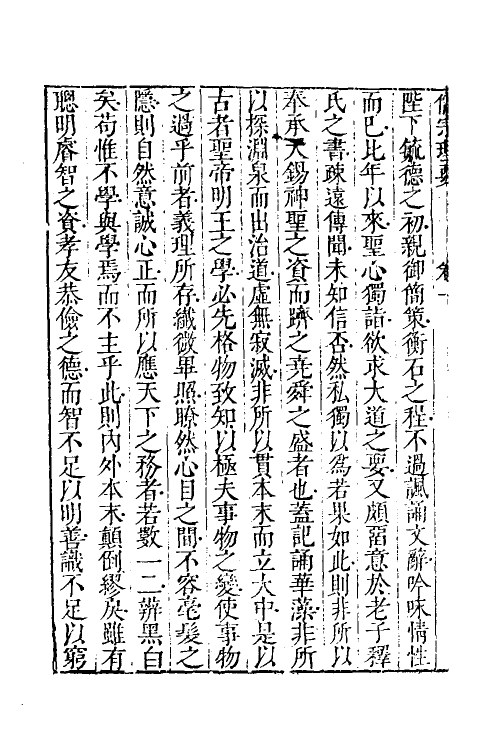 儒宗理要　卷一
陛下毓德之初親御簡策衡石之程不過諷誦文辭吟咏情性
而已比年以來聖心獨詣欲求大道之要又頗留意於老子釋
氏之書疎遠傳聞未知信否然私獨以爲若果如此則非所以
奉承天錫神聖之資而躋之堯舜之盛者也蓋記誦華藻非所
以探淵泉而出治道虛無寂滅非所以貫本末而立大中是以
古者聖帝明王之學必先格物致知以極夫事物之變使事物
之過乎前者義理所存纖微畢照瞭然心目之間不容毫髮之
隱則自然意誠心正而所以應天下之務者若數一二辨黑白
矣苟惟不學與學焉而不主乎此則內外本末顛倒繆戾雖有
聰明睿智之資孝友恭儉之德而智不足以明善識不足以窮